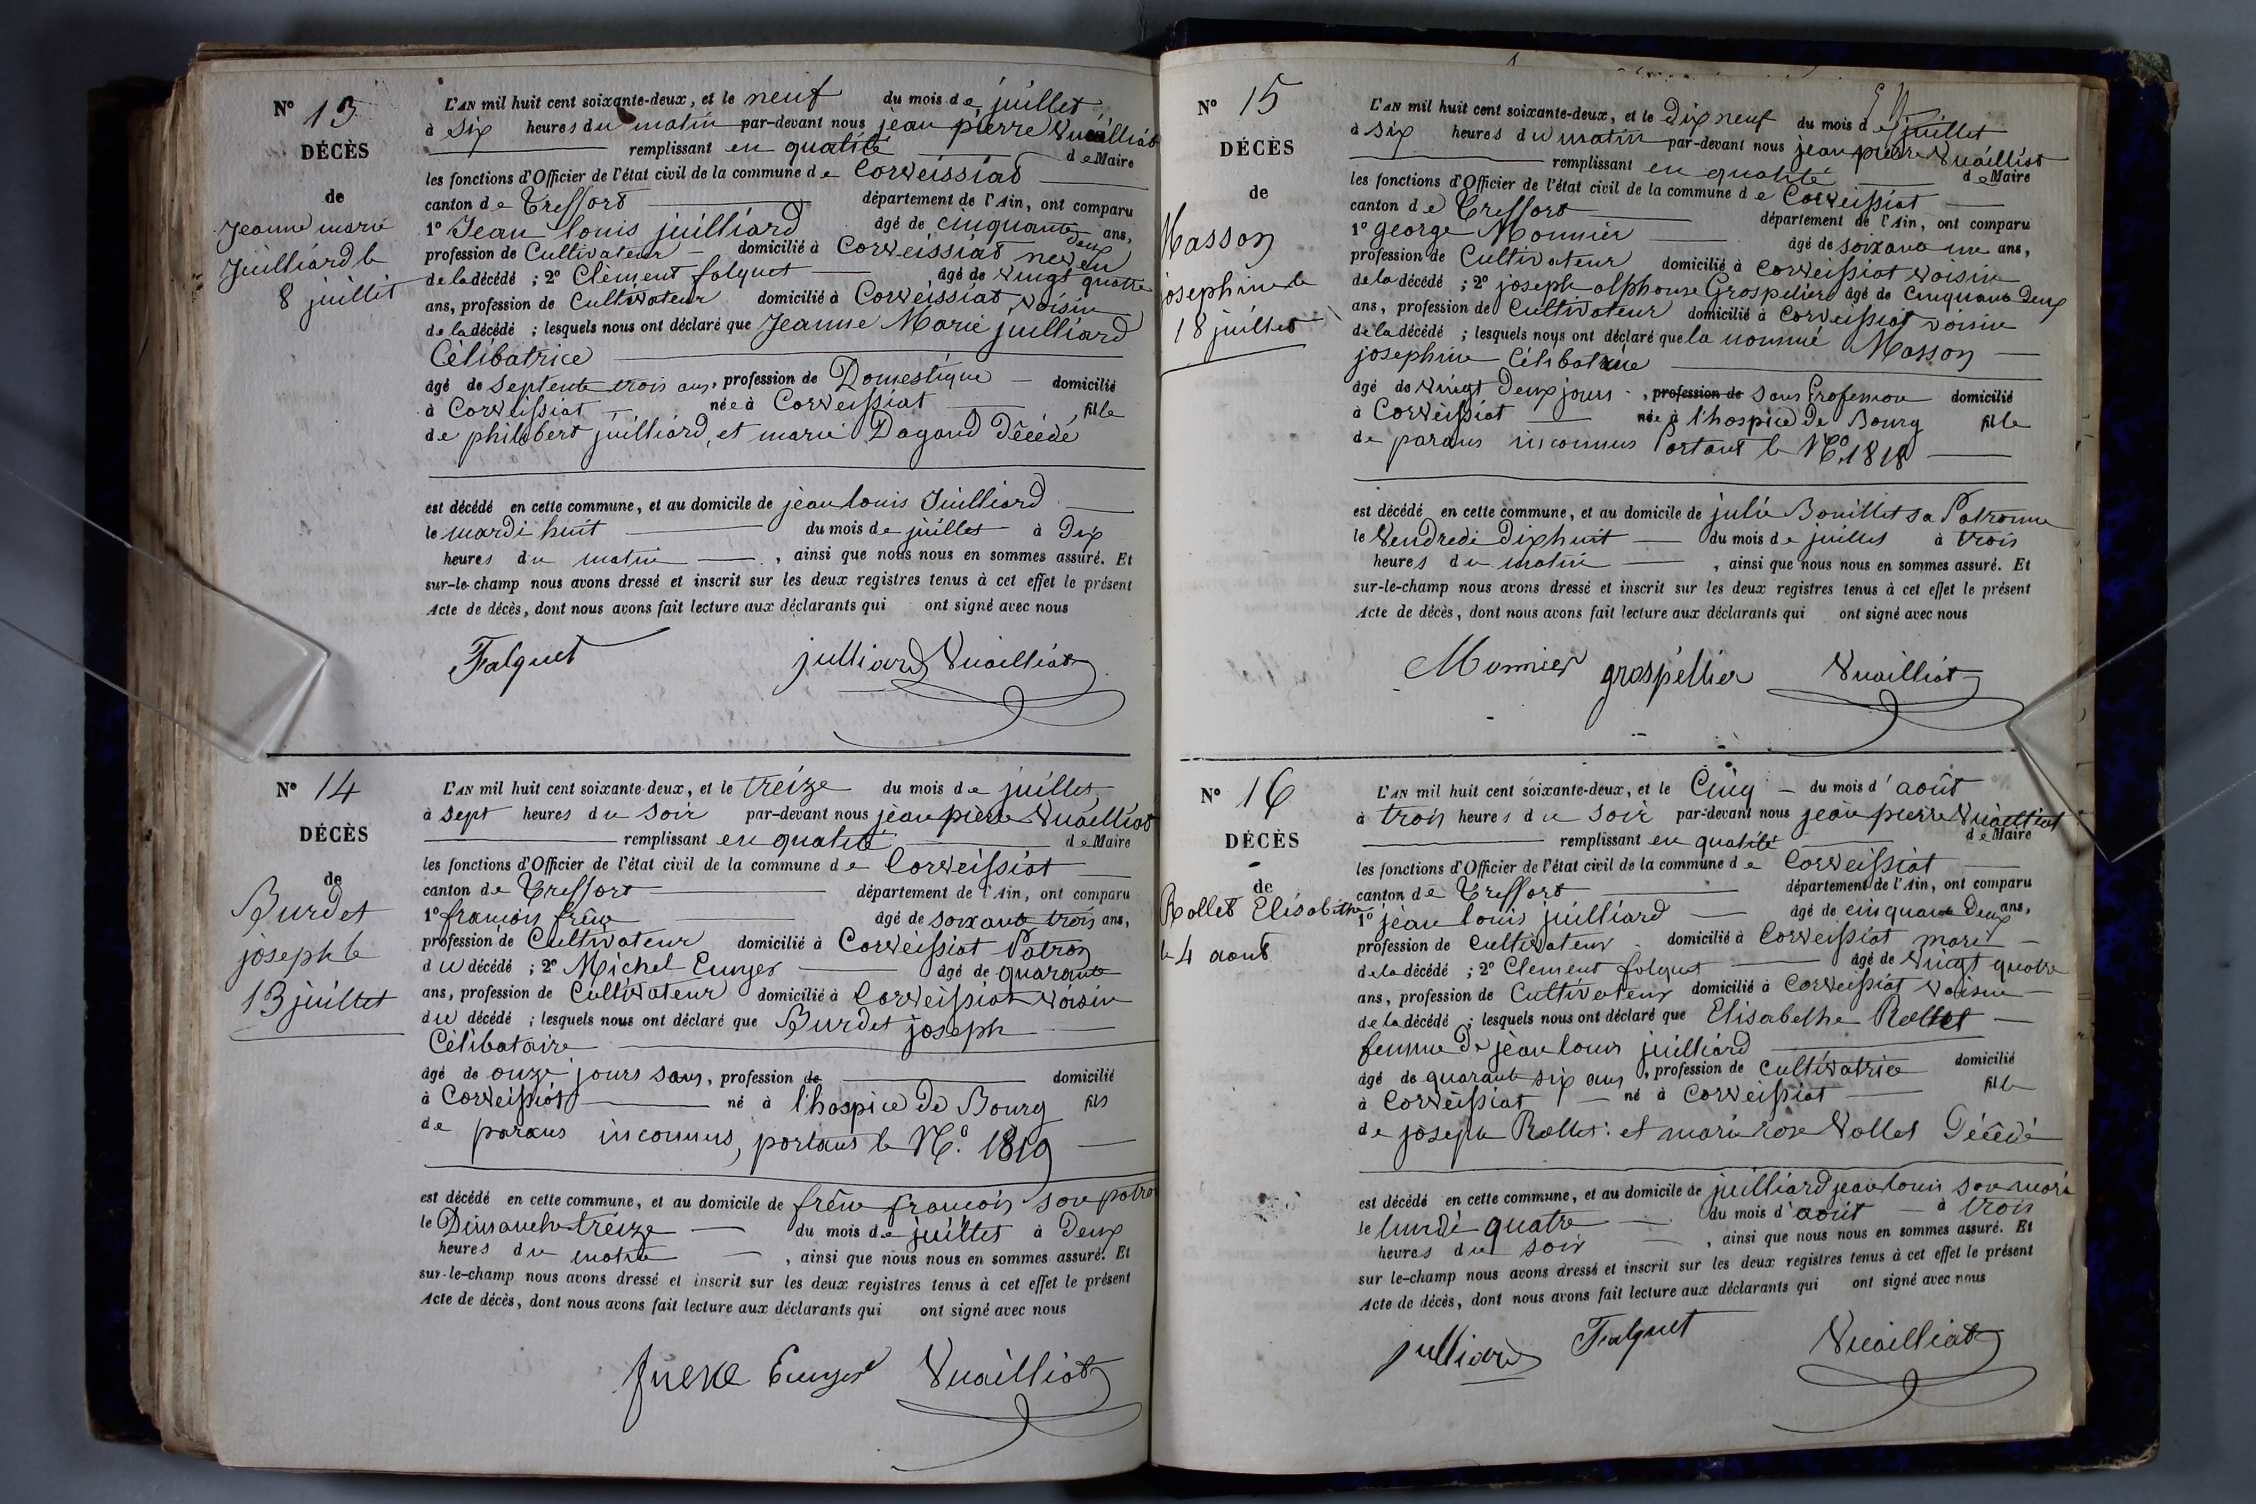 N° 13
DÉCÈS
de
Jeanne marie
Juilliard le
8 juillet
L'AN mil huit cent soixante-deux, et le neuf du mois de juillet
à six heures du matin par-devant nous jean pierre Vuailliat
remplissant en qualité de Maire
les fonctions d'Officier de l'état civil de la commune de Corveissiat
canton de Treffort département de l'Ain, ont comparu
1° Jean louis juilliard âgé de cinquante deux ans,
profession de Cultivateur domicilié à Corveissiat neveu
de la décédé ; 2° Clément falquet âgé de vingt quatre
ans, profession de Cultivateur domicilié à Corveissiat voisin
de la décédé ; lesquels nous ont déclaré que Jeanne Marie juilliard
Célibatrice
âgé de septente trois ans, profession de Domestique domicilié
à Corveissiat née à Corveissiat fille
de philibert juilliard, et marie Dagand Décédé
est décédé en cette commune, et au domicile de jean louis Juilliard
le mardi huit du mois de juillet à Dix
heures du matin , ainsi que nous nous en sommes assuré. Et
sur-le-champ nous avons dressé et inscrit sur les deux registres tenus à cet effet le présent
Acte de décès, dont nous avons fait lecture aux déclarants qui ont signé avec nous
Falquet julliard Vuailliat
N° 14
DÉCÈS
de
Burdet
joseph le
13 juillet
L'AN mil huit cent soixante-deux, et le treize du mois de juillet
à sept heures du soir par-devant nous jean pierre Vuailliat
remplissant en qualité de Maire
les fonctions d'Officier de l'état civil de la commune de Corveissiat
canton de Treffort département de l'Ain, ont comparu
1° francois frêne âgé de soixante trois ans,
profession de Cultivateur domicilié à Corveissiat Patron
du décédé ; 2° Michel Cunyer âgé de quarante
ans, profession de Cultivateur domicilié à Corveissiat voisin
du décédé ; lesquels nous ont déclaré que Burdet joseph
Célibataire
âgé de onze jours sans, profession de domicilié
à Corveissiat né à l'hospice De Bourg fils
de parans inconnus, portant le N°. 1819
est décédé en cette commune, et au domicile de frêne francois son patron
le Dimanche treize du mois de juillet à Deux
heures du matin , ainsi que nous nous en sommes assuré. Et
sur-le-champ nous avons dressé et inscrit sur les deux registres tenus à cet effet le présent
Acte de décès, dont nous avons fait lecture aux déclarants qui ont signé avec nous
Vuailliat
N° 15
DÉCÈS
de
Masson
josephine le
18 juillet
L'AN mil huit cent soixante-deux, et le Dix neuf du mois de juillet
à six heures du matin par-devant nous jean pierre Vuailliat
remplissant en qualité de Maire
les fonctions d'Officier de l'état civil de la commune de Corveissiat
canton de Treffort département de l'Ain, ont comparu
1° george Monnier âgé de soixante une ans,
profession de Cultivateur domicilié à Corveissiat voisin
de la décédé ; 2° joseph alphonse Grospelier âgé de Cinquante Deux
ans, profession de Cultivateur domicilié à Corveissiat voisin
de la décédé ; lesquels nous ont déclaré que la nommé Masson
josephine Célibatrice
âgé de vingt Deux jours , profession de sans Profession domicilié
à Corveissiat née à l'hospice De Bourg fille
de parans inconnus Portant le N° 1818
est décédé en cette commune, et au domicile de julie Bouillet sa Patronne
le Vendredi Dixhuit du mois de juillet à trois
heures du matin , ainsi que nous nous en sommes assuré. Et
sur-le-champ nous avons dressé et inscrit sur les deux registres tenus à cet effet le présent
Acte de décès, dont nous avons fait lecture aux déclarants qui ont signé avec nous
Monnier grospellier Vuailliat
N° 16
DÉCÈS
de
Rollet Elisabethe
le 4 aout
L'AN mil huit cent soixante-deux, et le Cinq du mois d'août
à trois heures du soir par-devant nous jean pierre Vuailliat
remplissant en qualité de Maire
les fonctions d'Officier de l'état civil de la commune de Corveissiat
canton de Treffort département de l'Ain, ont comparu
1° jean louis juilliard âgé de cinquante Deux ans,
profession de cultivateur domicilié à Corveissiat mari
de la décédé ; 2° Clement falquet âgé de vingt quatre
ans, profession de Cultivateur domicilié à Corveissiat voisin
de la décédé ; lesquels nous ont déclaré que Elisabethe Rollet
femme De jean louis juilliard
âgé de quarante six ans , profession de Cultivatrice domicilié
à Corveissiat né à Corveissiat fille
de joseph Rollet et marie rose Vollet Décédé
est décédé en cette commune, et au domicile de juilliard jean louis son mari
le lundi quatre du mois d'août à trois
heures du soir , ainsi que nous nous en sommes assuré. Et
sur le-champ nous avons dressé et inscrit sur les deux registres tenus à cet effet le présent
Acte de décès, dont nous avons fait lecture aux déclarants qui ont signé avec nous
julliard Falquet Vuailliat